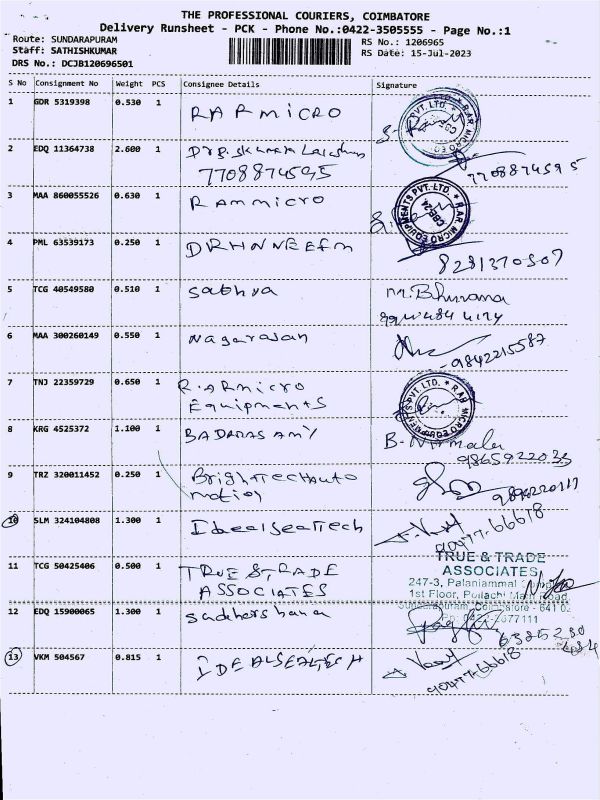 THE PROFESSIONAL COURIERS, COIMBATORE
Delivery Runsheet - PCK - Phone No.:0422-3505555 - Page No.:1
Route: SUNDARAPURAM RS No.: 1206965
Staff: SATHISHKUMAR RS Date: 15-Jul-2023
DRS No.: DCJB120696501
S No Consignment No Weight PCS Consignee Details Signature
1 GDR 5319398 0.530 1 RARMICRO
2 EDQ 11364738 2.600 1
7708874595 7708874595
3 MAA 860055526 0.630 1 Rammicro
4 PML 63539173 0.250 1 8281370507
5 TCG 40549580 0.510 1 Sabhva M.Bhuvana
6 MAA 300260149 0.550 1 Nagarajan 9842215587
7 TNJ 22359729 0.650 1 R.ARmicro
Equipments
8 KRG 4525372 1.100 1 BADARASAMY B-Nirmala
9865922033
9 TRZ 320011452 0.250 1 BrightTechAuto
mation
10 SLM 324104808 1.300 1 IdealSeaTech 90477-66618
11 TCG 50425406 0.500 1 TRUE & TRADE
ASSOCIATES
TRUE & TRADE
ASSOCIATES
247-3, Palaniammal
1st Floor, Pollachi Main Road
Sundarapuram, Coimbatore - 641 02
12 EDQ 15900065 1.300 1
13 VKM 504567 0.815 1 IDEALSEATECH 90477-66618